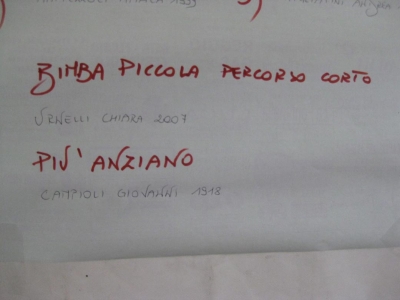 BIMBA PICCOLA PERCORSO CORTO
URNELLI CHIARA 2007
PIU' ANZIANO
CAMPIOLI GIOVANNI 1918